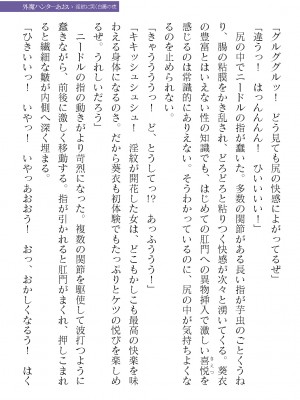 「グルググルッ！　どう見ても尻の快感によがってるぜ」
「違うっ！　はっんんん！　ひいいいい！」
　尻の中でニードルの指が蠢いた。多数の関節がある長い指が芋虫のごとくうね
り、腸の粘膜をかき乱され、どろどろと粘りつく快感が次々と湧いてくる。葵衣
の豊富とはいえない性の知識でも、はじめての肛門への異物挿入で激しい喜悦を
感じるのは常識的にありえない。そうわかっているのに、尻の中が気持ちよくな
るのを止められない。
「きゃううううっ！　ど、とうしてっ!?　あっふううっ！」
「キキッシュシュシュ！　淫紋が開花した女は、どこもかしこも最高の快楽を味
わえる身体になるのさ、だから葵衣も初体験でもたっぷりとケツの悦びを楽しめ
るぜ。うれしいだろう」
　ニードルの指の動きがより苛烈になった。複数の関節を駆使して波打つように
蠢きながら、前後に激しく移動する。指が引かれると肛門がまくれ、押しこまれ
ると繊細な皺が内側へ深く埋まる。
「ひきいいっ！　いやっ！　いやっあおおう！　おっ、おかしくなるう！　はく